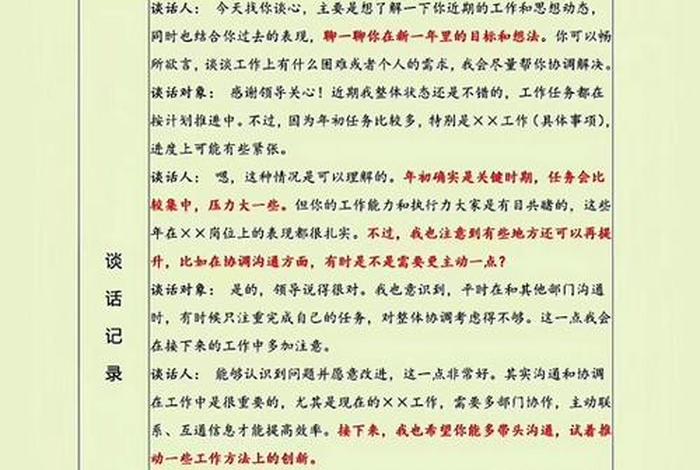 谈话人： 今天找你谈心，主要是想了解一下你近期的工作和思想动态，
同时也结合你过去的表现，聊一聊你在新一年里的目标和想法。你可以畅
所欲言，谈谈工作上有什么困难或者个人的需求，我会尽量帮你协调解决。
谈话对象： 感谢领导关心！近期我整体状态还是不错的，工作任务都在
按计划推进中。不过，因为年初任务比较多，特别是××工作（具体事项），
进度上可能有些紧张。
谈话人： 嗯，这种情况是可以理解的。年初确实是关键时期，任务会比
较集中，压力大一些。但你的工作能力和执行力大家是有目共睹的，这些
年在××岗位上的表现都很扎实。不过，我也注意到有些地方还可以再提
升，比如在协调沟通方面，有时是不是需要更主动一点？
谈话对象： 是的，领导说得很对。我也意识到，平时在和其他部门沟通
时，有时候只注重完成自己的任务，对整体协调考虑得不够。这一点我会
在接下来的工作中多加注意。
谈话人： 能够认识到问题并愿意改进，这一点非常好。其实沟通和协调
在工作中是很重要的，尤其是现在的××工作，需要多部门协作，主动联
系、互通信息才能提高效率。接下来，我也希望你能多带头沟通，试着推
动一些工作方法上的创新。
谈
话
记
录